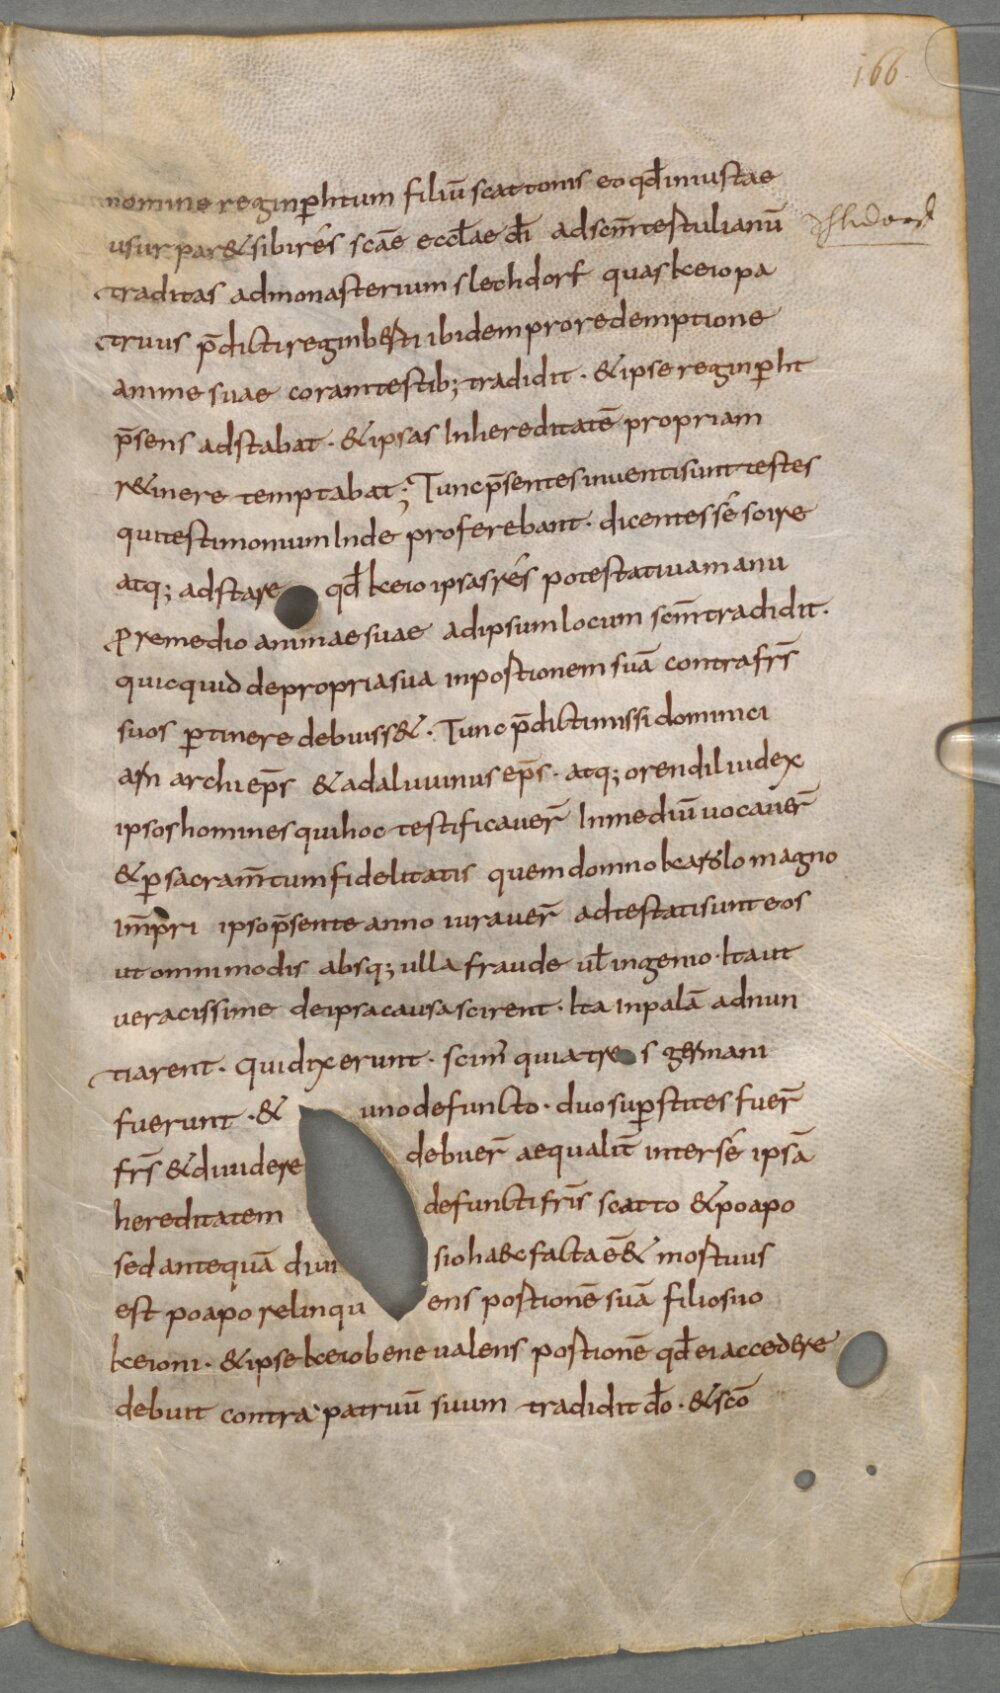 166
nomine reginp̲htum filiū scattonis eo qđ iniustae
usurpar& sibi rés scāe eccłae dī ad scm̄ testulianū
Shlidorf
traditas ad monasterium slechdorf quas keio pa
truus p̄dicti reginberti ibidem pro redemptione
anime suae coram testib; tradidit · & ipse reginp̲ht
p̄sens adstabat · & ipsas In hereditatē propriam
r&inere temptabat; Tunc p̄sentes inventi sunt testes
qui testimonium Inde proferebant · dicentes sé scire
atq; adstare qđ keio ipsas rés potestativa manu
ꝓ remedio animae suae ad ipsum locum scm̄ tradidit ·
quicquid de propria sua in portionem suā contra frs̄
suos p̲tinere debuiss& · Tunc p̄dicti missi dominici
arn archi ep̄s & adaluuinus ep̄s · atq; orendil iudex
ipsos homines qui hoc testificaver̄ In mediū vocaver̄
& p̲ sacram̄tum fidelitatis quem domno karolo magno
im̄pri ipso p̄sente anno iuraver̄ adtestati sunt eos
ut omnimodis absq; ulla fraude uł ingenio · Ita ut
veracissime de ipsa causa scirent · Ita in palā adnun
tiarent · Qui dixerunt · scim̄ quia tres germani
fuerunt · & uno defuncto · duo sup̲stites fuer̄
frs̄ & dividere debuer̄ aequalit̄ inter sé ipsā
hereditatem defuncti fris̄ scatto & poapo
sed antequā divisio haec facta ē & mortuus
est poapo relinquens portionē suā filio suo
keioni · & ipse keio bene valens portionē qđ ei accedere
debuit contra patruū suum tradidit dō · & scō